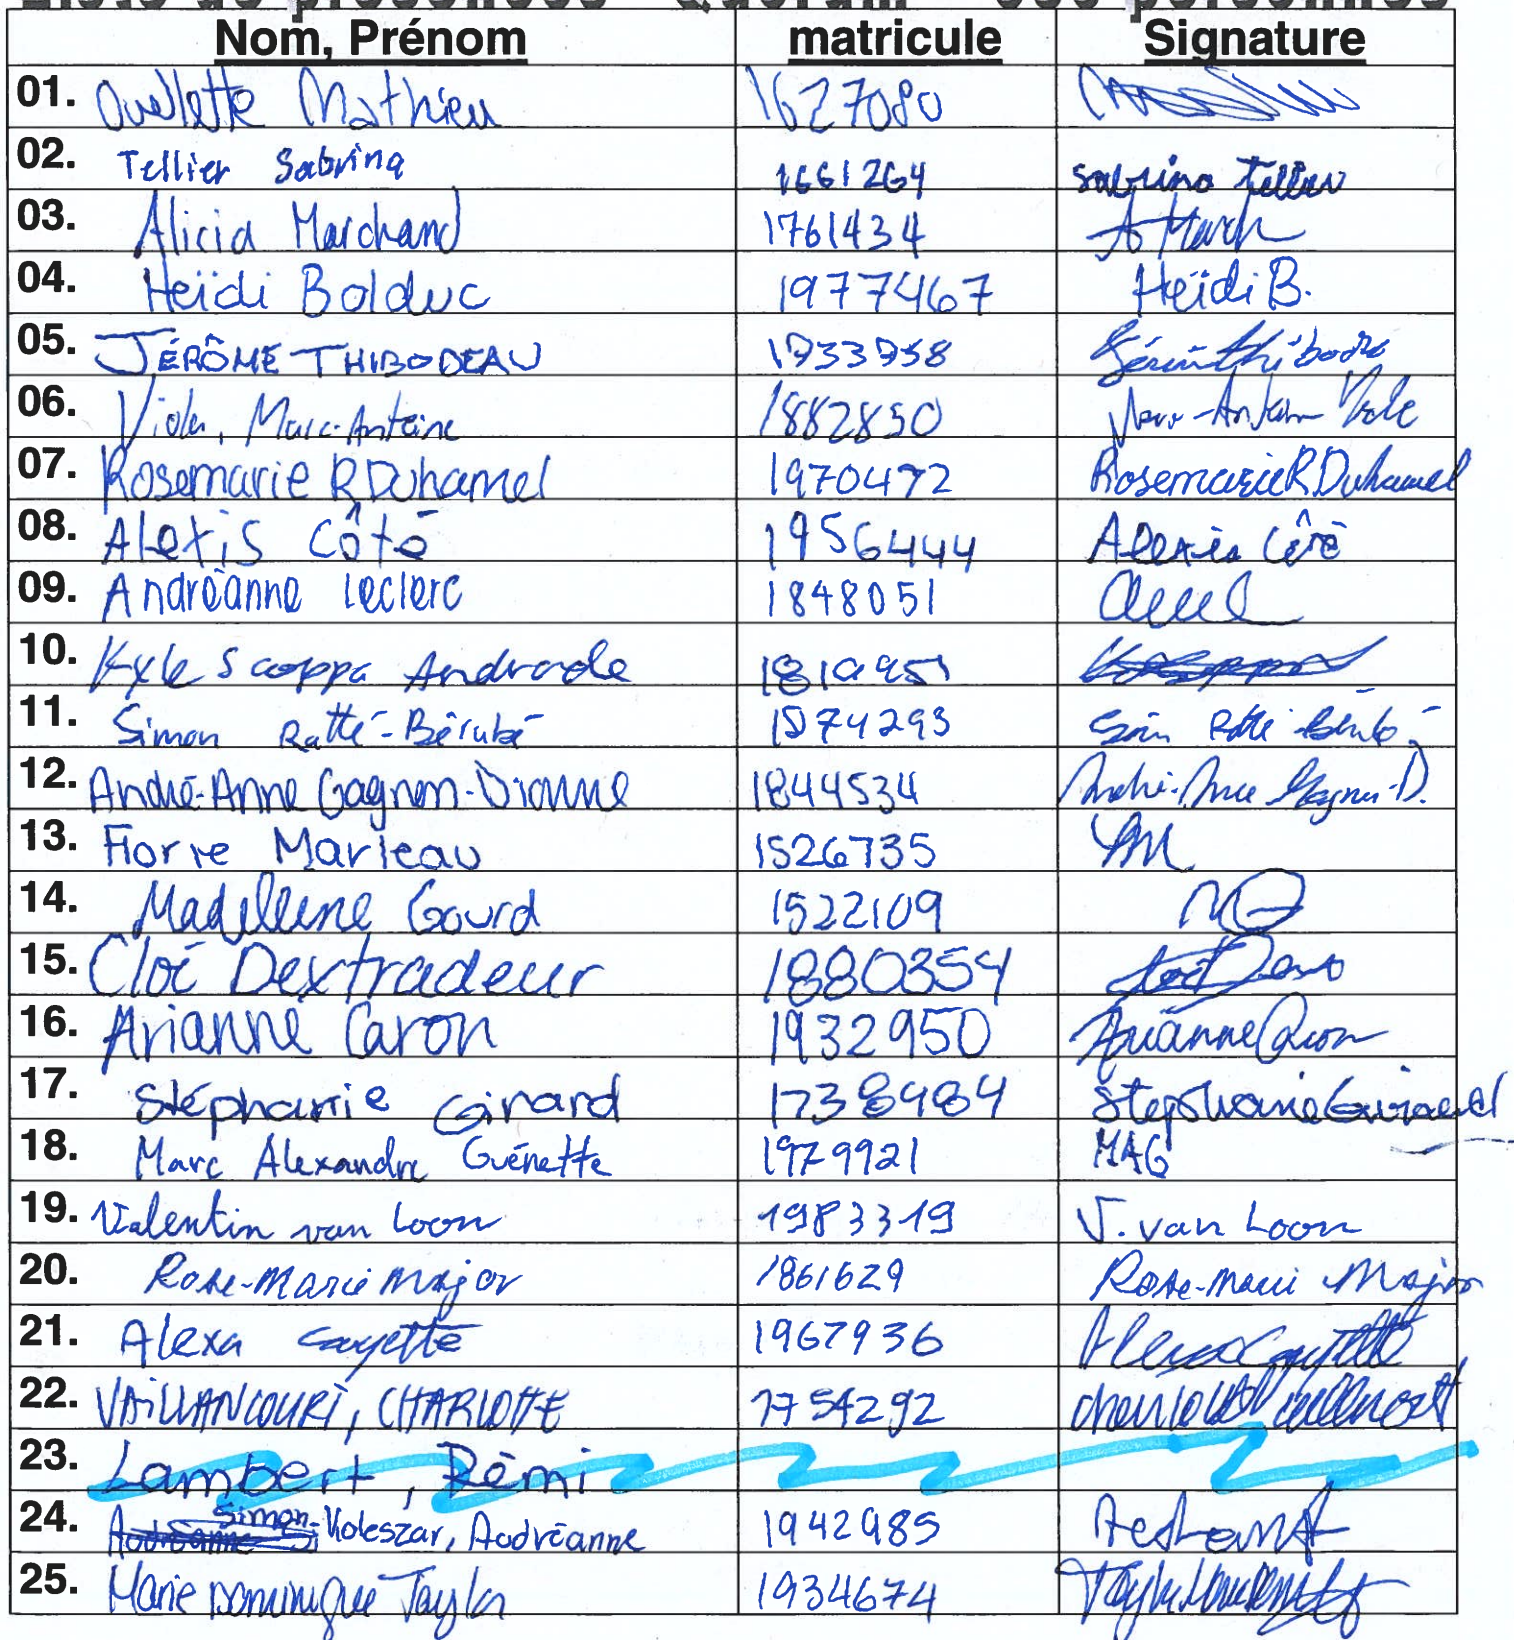 Liste de présences "Quorum" - 336 personnes
Nom, Prénom matricule Signature
01. Ouellette Mathieu 1627080
02. Tellier Sabrina 1661264 Sabrina Tellier
03. Alicia Marchand 1761434 A March
04. Heïdi Bolduc 1977467 Heïdi B.
05. JÉRÔME THIBODEAU 1733758
06. Viola, Marc-Antoine 1882850 Marc-Antoine Viola
07. Rosemarie R Duhamel 1970472 Rosemarie R Duhamel
08. Alexis Côté 1956444 Alexis Côté
09. Andréanne Leclerc 1848051
10. Kyle Scoppa Andrade
11. Simon Ratté-Bérubé 1874293 Simon Ratté-Bérubé
12. André-Anne Gagnon-Dionne 1844534 André-Anne Gagnon-D.
13. Marleau 1526735
14. Madeleine Gourd 1522109 MG
15. Cloé Dextradeur 1880354
16. Arianne Caron 1932950 Arianne Caron
17. Stéphanie Girard 1738984 Stéphanie Girard
18. Marc Alexandre Guénette 1979921 MAG
19. Valentin van Loon 1983319 V. van Loon
20. Rose-Marie Major 1861629 Rose-Marie Major
21. Alexa Cayette 1967936 Alexa Cayette
22. VAILLANCOURT, CHARLOTTE 1754292 Charlotte Vaillancourt
23. Lambert, Rémi
24. Simon-Koleszar, Audréanne 1942985
25. Marie Dominique Taylor 1934674